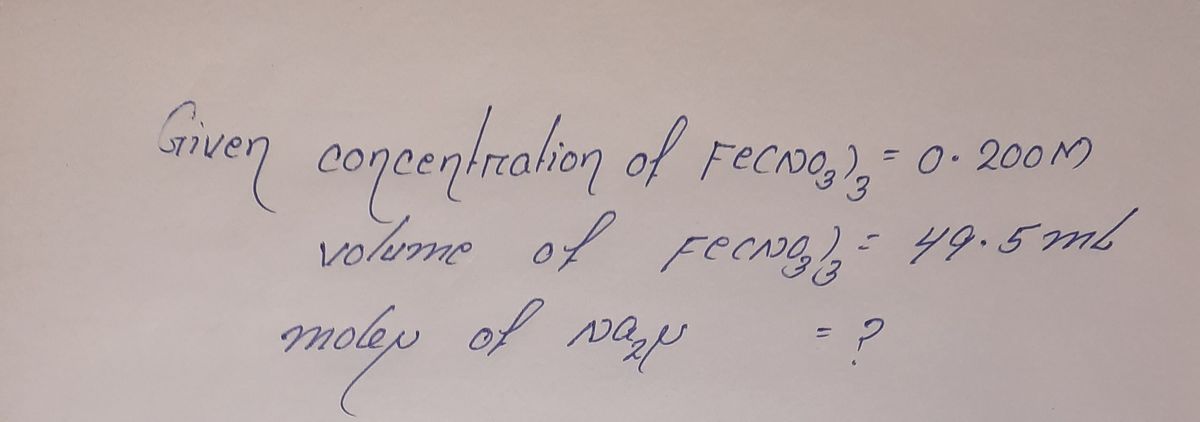 Given concentration of Fe(NO3)3 = 0.200M
volume of Fe(NO3)3 = 49.5 mL
moles of Na2S = ?